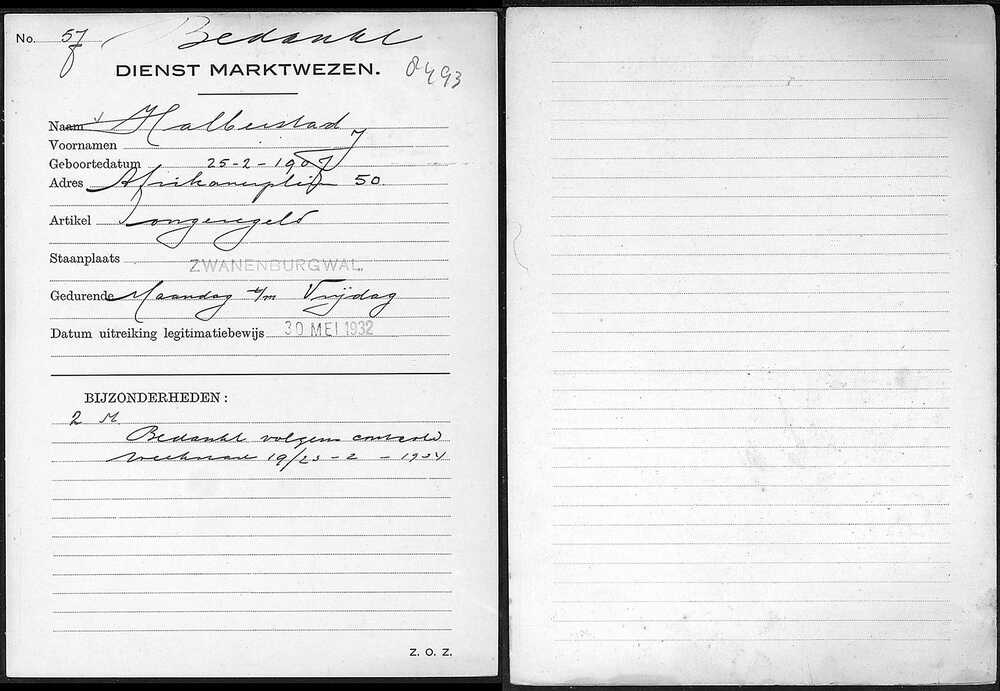 No. 57 Bedankt
DIENST MARKTWEZEN. 8493
Naam Halberstad
Voornamen J
Geboortedatum 25-2-1907
Adres Afrikanerplein 50.
Artikel ongeregeld
Staanplaats ZWANENBURGWAL.
Gedurende Maandag t/m Vrijdag
Datum uitreiking legitimatiebewijs 30 MEI 1932
BIJZONDERHEDEN:
2 M
Bedankt volgens controle
weekstaat 19/23-2-1934
Z. O. Z.